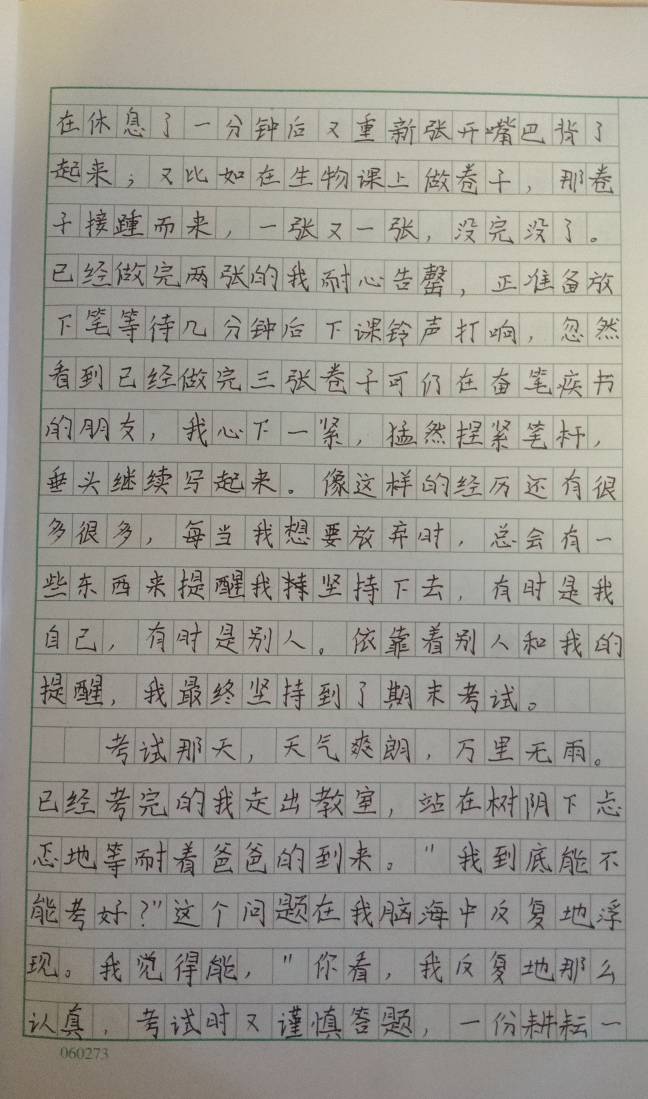 在休息了一分钟后又重新张开嘴巴背了
起来；又比如在生物课上做卷子，那卷
子接踵而来，一张又一张，没完没了。
已经做完两张的我耐心告罄，正准备放
下笔等待几分钟后下课铃声打响，忽然
看到已经做完三张卷子可仍在奋笔疾书
的朋友，我心下一紧，猛然捏紧笔杆，
垂头继续写起来。像这样的经历还有很
多很多，每当我想要放弃时，总会有一
些东西来提醒我坚持下去，有时是我
自己，有时是别人。依靠着别人和我的
提醒，我最终坚持到了期末考试。
考试那天，天气爽朗，万里无雨。
已经考完的我走出教室，站在树阴下忐
忑地等耐着爸爸的到来。"我到底能不
能考好？"这个问题在我脑海中反复地浮
现。我觉得能，"你看，我反复地那么
认真，考试时又谨慎答题，一份耕耘一
060273